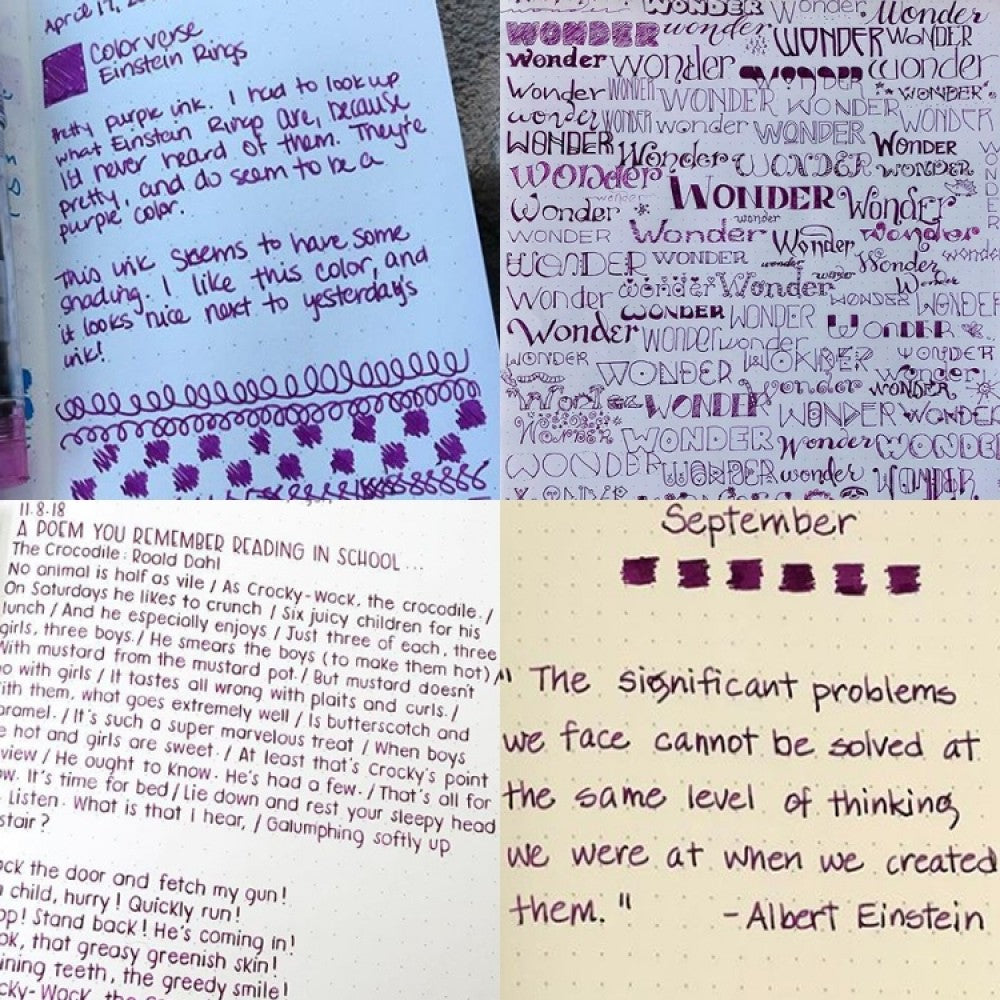 April 17, 20
Colorverse
Einstein Rings
Pretty purple ink. I had to look up
what Einstain Rings are, because
I'd never heard of them. They're
pretty, and do seem to be a
purple color.
This ink seems to have some
shading. I like this color, and
it looks nice next to yesterday's
ink!
WONDER wonder Wonder
WONDER wonder WONDER WONDER
Wonder wonder wonder wonder
Wonder WONDER WONDER WONDER WONDER
wonder WONDER wonder WONDER WONDER
WONDER Wonder WONDER WONDER
Wonder wonder WONDER Wonder WONDER
Wonder wonder
WONDER Wonder Wonder wonder
WONDER WONDER wonder Wonder wonde
Wonder wonder Wonder WONDER WONDER
WONDER WONDER WONDER
Wonder WONDER wonder
WONDER WONDER WONDER WONDER
Wonder wonder wonder WONDER
Wonder WONDER WONDER WONDER
Wonder WONDER Wonder WONDER
WONDER WONDER wonder WONDER
WONDER
11.8.18
A POEM YOU REMEMBER READING IN SCHOOL...
The Crocodile: Roald Dahl
No animal is half as vile / As Crocky-Wock, the crocodile. /
On Saturdays he likes to crunch / Six juicy children for his
lunch / And he especially enjoys / Just three of each, three
girls, three boys. / He smears the boys (to make them hot) /
With mustard from the mustard pot. / But mustard doesn't
o with girls / It tastes all wrong with plaits and curls. /
ith them, what goes extremely well / Is butterscotch and
aramel. / It's such a super marvelous treat / When boys
e hot and girls are sweet. / At least that's Crocky's point
view / He ought to know. He's had a few. / That's all for
ow. It's time for bed / Lie down and rest your sleepy head
. Listen. What is that I hear, / Galumphing softly up
stair?
ock the door and fetch my gun!
child, hurry! Quickly run!
op! Stand back! He's coming in!
ok, that greasy greenish skin!
ining teeth, the greedy smile!
cky-Wock, the
September
" The significant problems
we face cannot be solved at
the same level of thinking
we were at when we created
them. "
-Albert Einstein